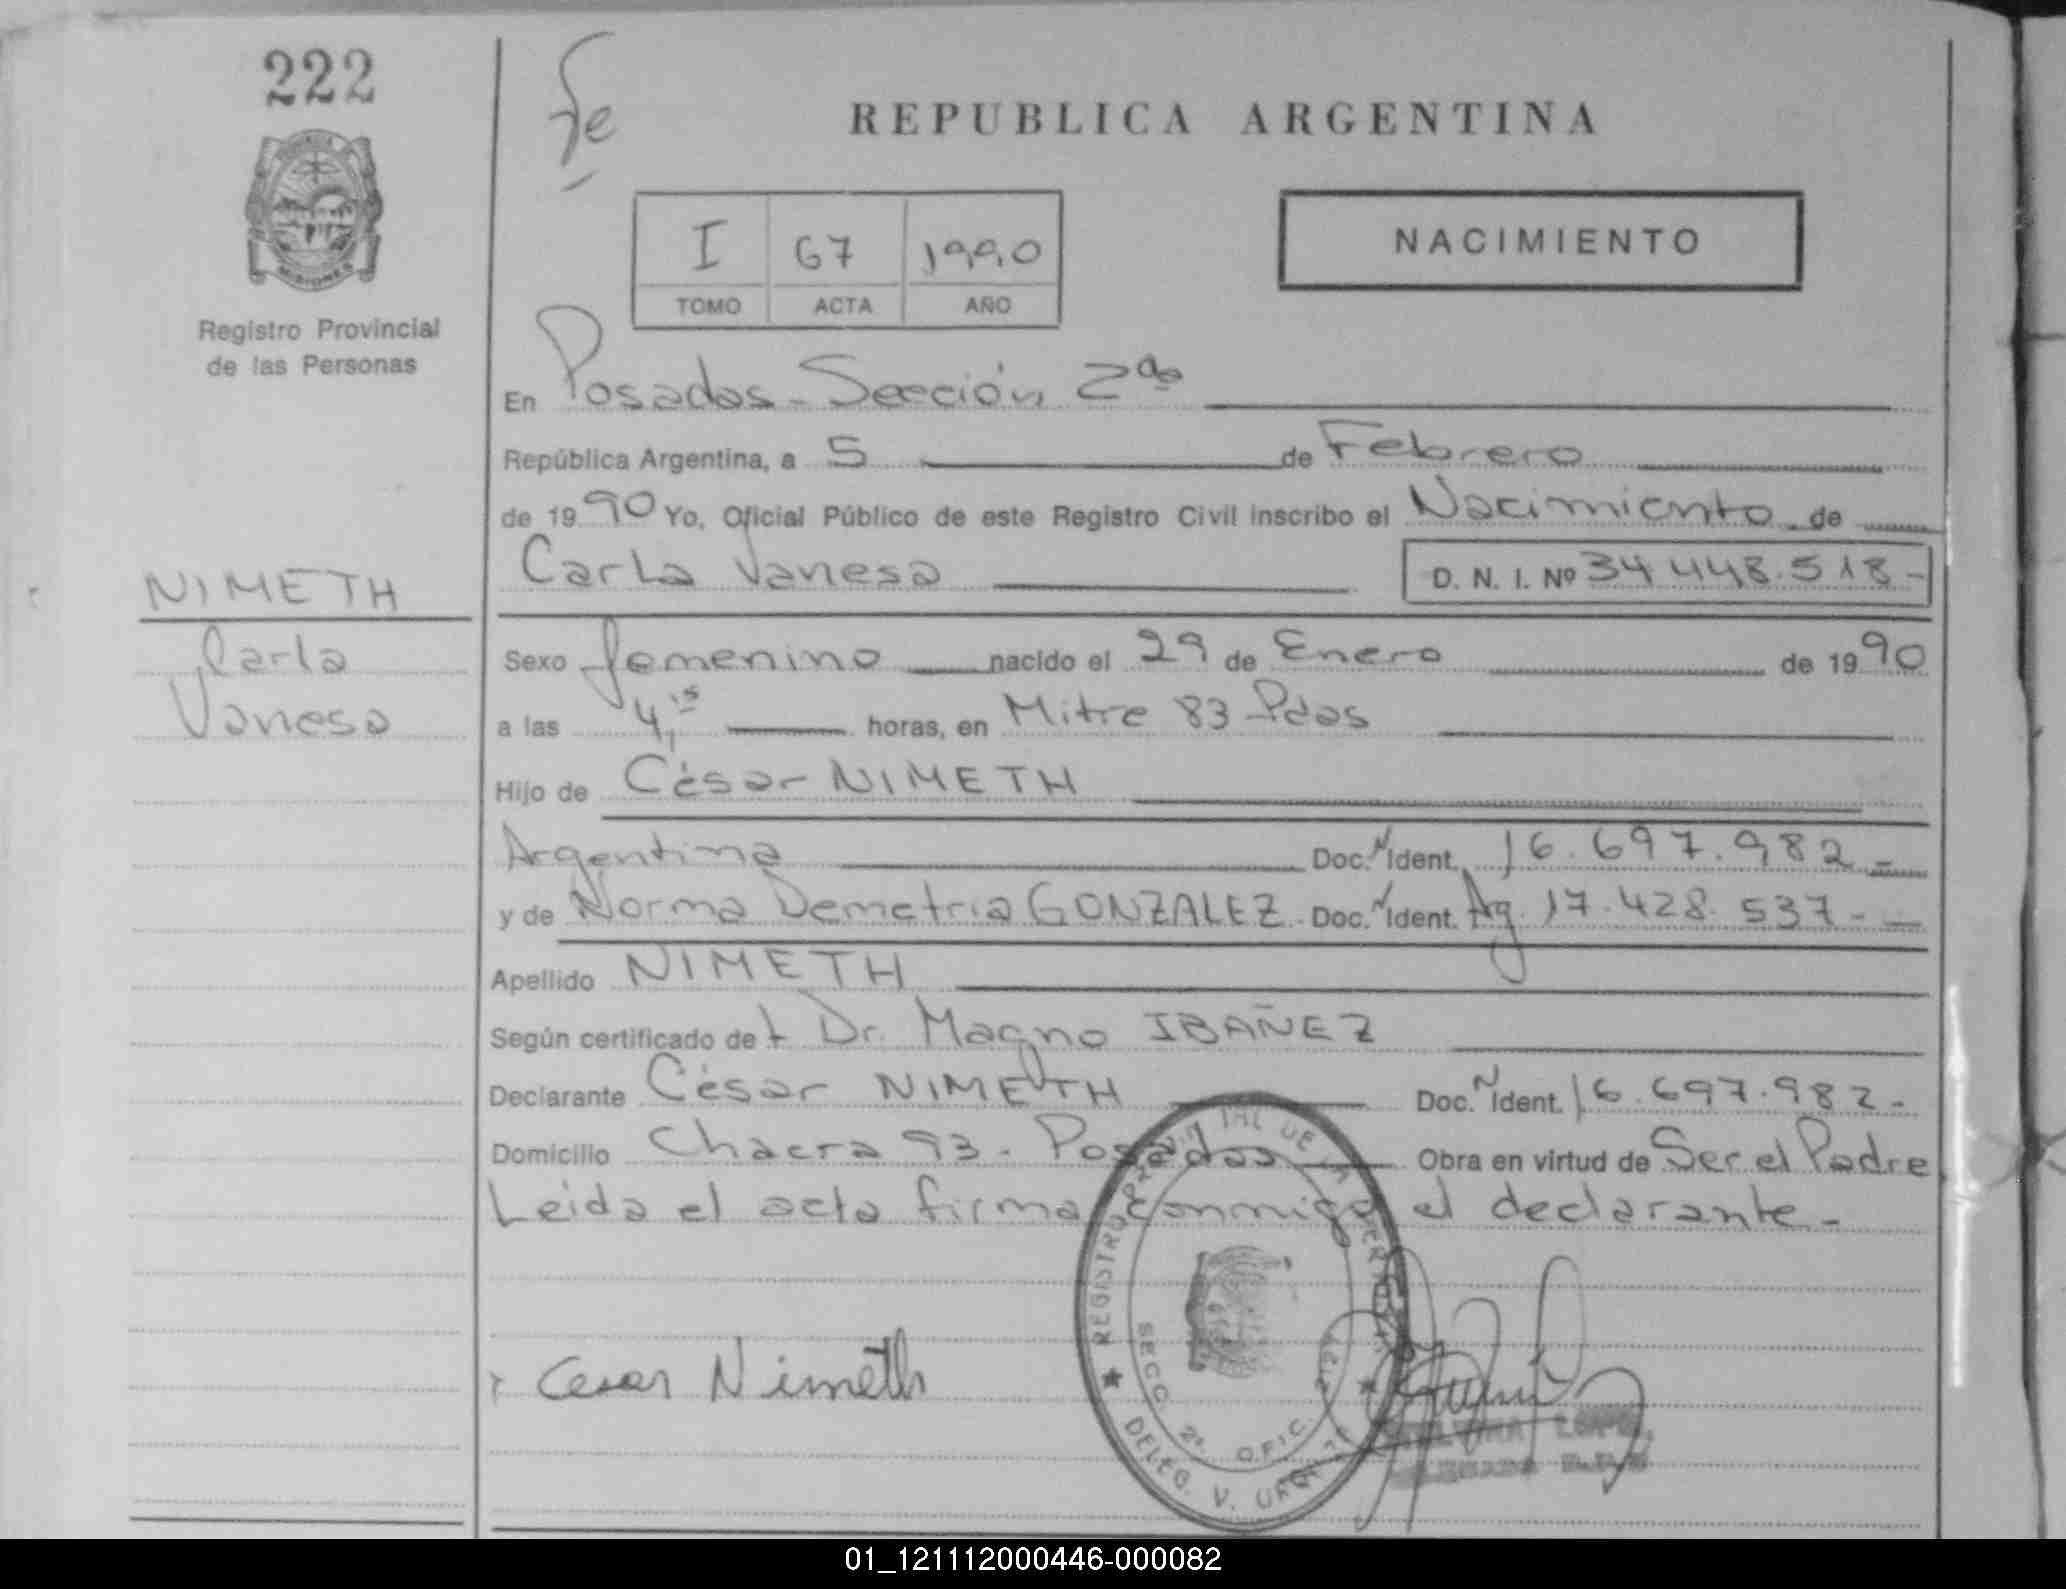 222
Fe
REPUBLICA ARGENTINA
MISIONES
Registro Provincial
de las Personas
I 67 1990
TOMO ACTA AÑO
NACIMIENTO
En Posadas - Sección 2da
República Argentina, a 5 de Febrero
de 1990 Yo, Oficial Público de este Registro Civil inscribo el Nacimiento de
Carla Vanesa D. N. I. Nº 34 448.518-
NIMETH
Carla
Vanesa
Sexo femenino nacido el 29 de Enero de 1990
a las 4,15 horas, en Mitre 83 - Pdas
Hijo de César NIMETH
Argentina Doc. N Ident. 16.697.982-
y de Norma Demetria GONZALEZ - Doc. N Ident. Ag. 17.428.537-
Apellido NIMETH
Según certificado del Dr. Magno IBAÑEZ
Declarante César NIMETH Doc. N Ident. 16.697.982-
Domicilio Chacra 93 - Posadas Obra en virtud de Ser el Padre
Leida el acta firma conmigo el declarante -
Cesar Nimeth
REGISTRO PROVINCIAL DE LAS PERSONAS
SECC. 2ª. OFIC.
DELEG. V. URQUIZA
01_121112000446-000082